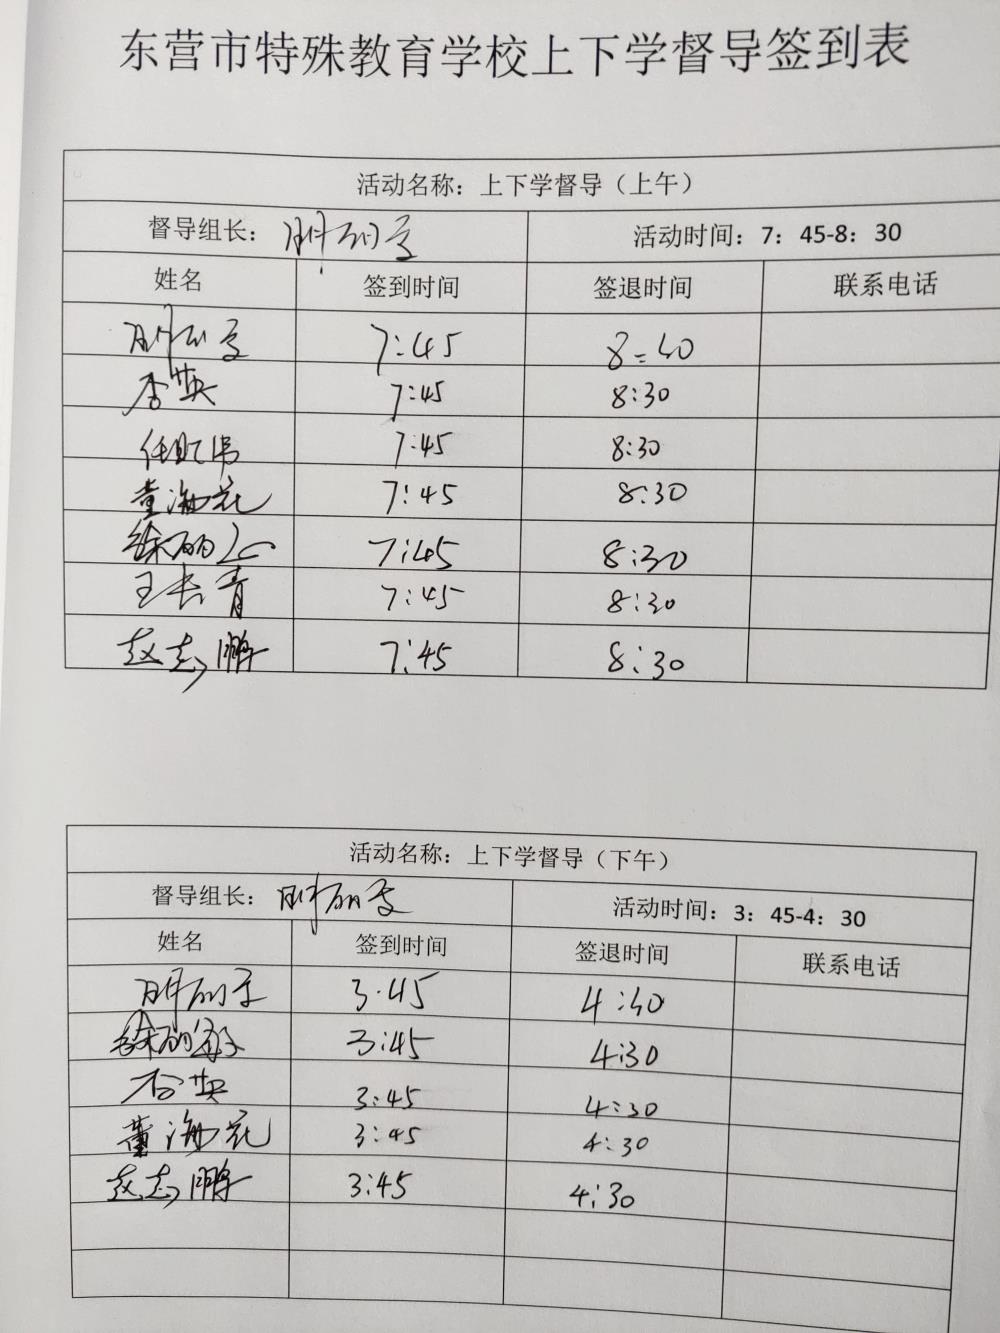 东营市特殊教育学校上下学督导签到表
活动名称：上下学督导（上午）
督导组长：
活动时间：7：45-8：30
姓名 签到时间 签退时间 联系电话
7:45 8:40
杏英 7:45 8:30
7:45 8:30
董海花 7:45 8:30
徐丽 7:45 8:30
王长青 7:45 8:30
赵志鹏 7:45 8:30
活动名称：上下学督导（下午）
督导组长：
活动时间：3：45-4：30
姓名 签到时间 签退时间 联系电话
3:45 4:40
徐丽 3:45 4:30
杏英 3:45 4:30
董海花 3:45 4:30
赵志鹏 3:45 4:30